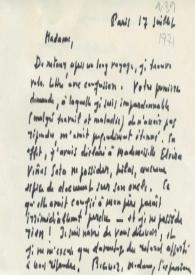 Paris 17 juillet
1971
Madame,
De retour après un long voyage, je trouve
votre lettre avec confusion. Votre première
demande, à laquelle je suis impardonnable
(malgré travail et maladie) de n'avoir pas
répondu m'avait cependant étonné. En
effet, j'avais déclaré à Mademoiselle Eloisa
Viñas Soto ne posséder, hélas, aucune
espèce de documents sur son oncle. Ce
qu'elle avait confié à mon père paraît
irrémédiablement perdu — et je ne possède
rien! Je suis navré de vous décevoir, et
je ne m'excuse que davantage du retard apporté
à vous répondre. Madame, l'expression